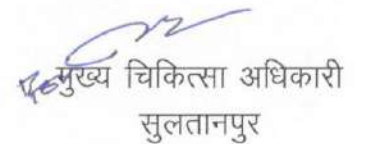 मुख्य चिकित्सा अधिकारी
सुलतानपुर